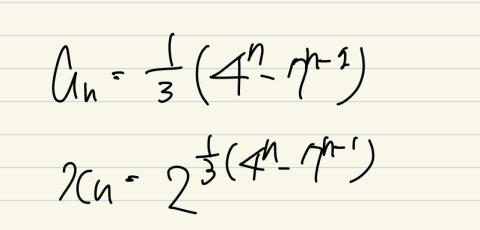 aₙ = 1/3 (4ⁿ - 7ⁿ⁻¹)
xₙ = 2^{1/3 (4ⁿ - 7ⁿ⁻¹)}